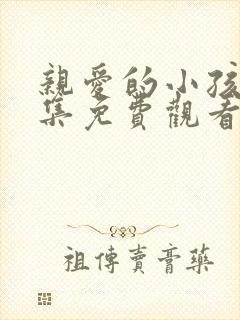 親愛的小孩
集免費觀看
祖傳賣膏藥